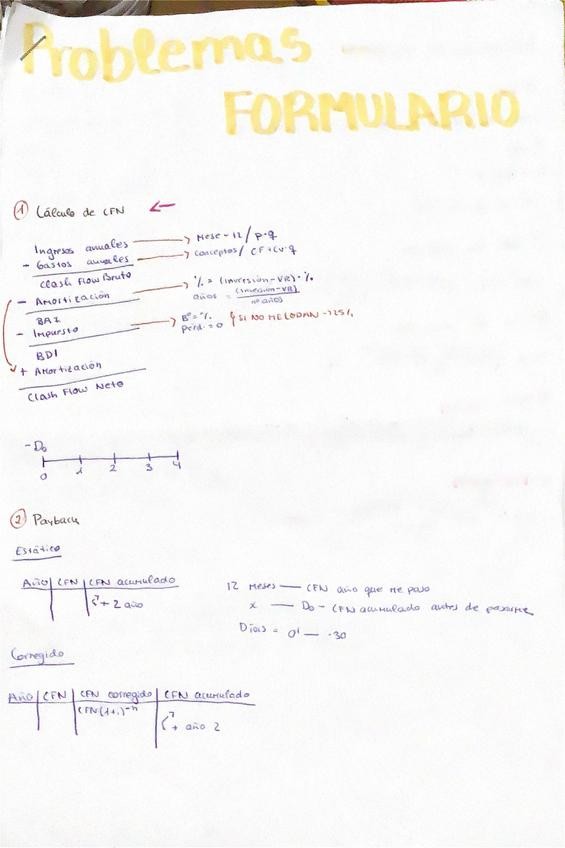 Problemas
FORMULARIO
① Cálculo de CFN ←
Ingresos anuales → Mese - 12 / p·q
- Gastos anuales → conceptos / CF + CV·q
Clash Flow Bruto
- Amortización → % = (Inversión - VR) · %
años = (Inversión - VR) / nº años
BAI
- Impuesto → Bº = %
Perd. = 0 SI NO ME LO DAN - 125%
BDI
+ Amortización
Clash Flow Neto
- D₀
0 1 2 3 4
② Payback
Estático
Año CFN CFN acumulado
+ 2 año
12 Meses — CFN año que me paso
x — D₀ - CFN acumulado antes de pasarme
Días = 0' — · 30
Corregido
Año CFN CFN corregido CFN acumulado
CFN(1+i)⁻ⁿ
+ año 2